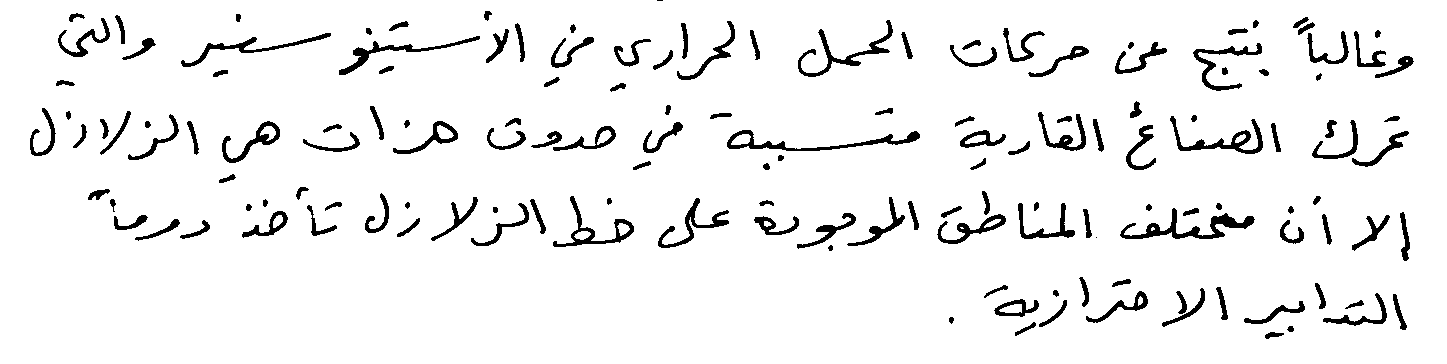 وغالباً ينتج عن حركات الحمل الحراري في الأستينو سفير والتي
تحرك الصفائح القارية متسببة في حدوث هزات هي الزلازل
إلا أن مختلف المناطق الموجودة على خط الزلازل تأخذ دوماً
التدابير الاحترازية .